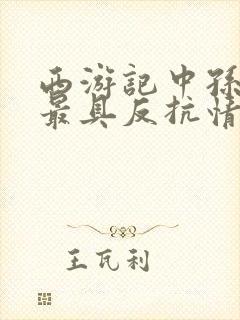 西游記中孫
最具反抗情
王瓦利